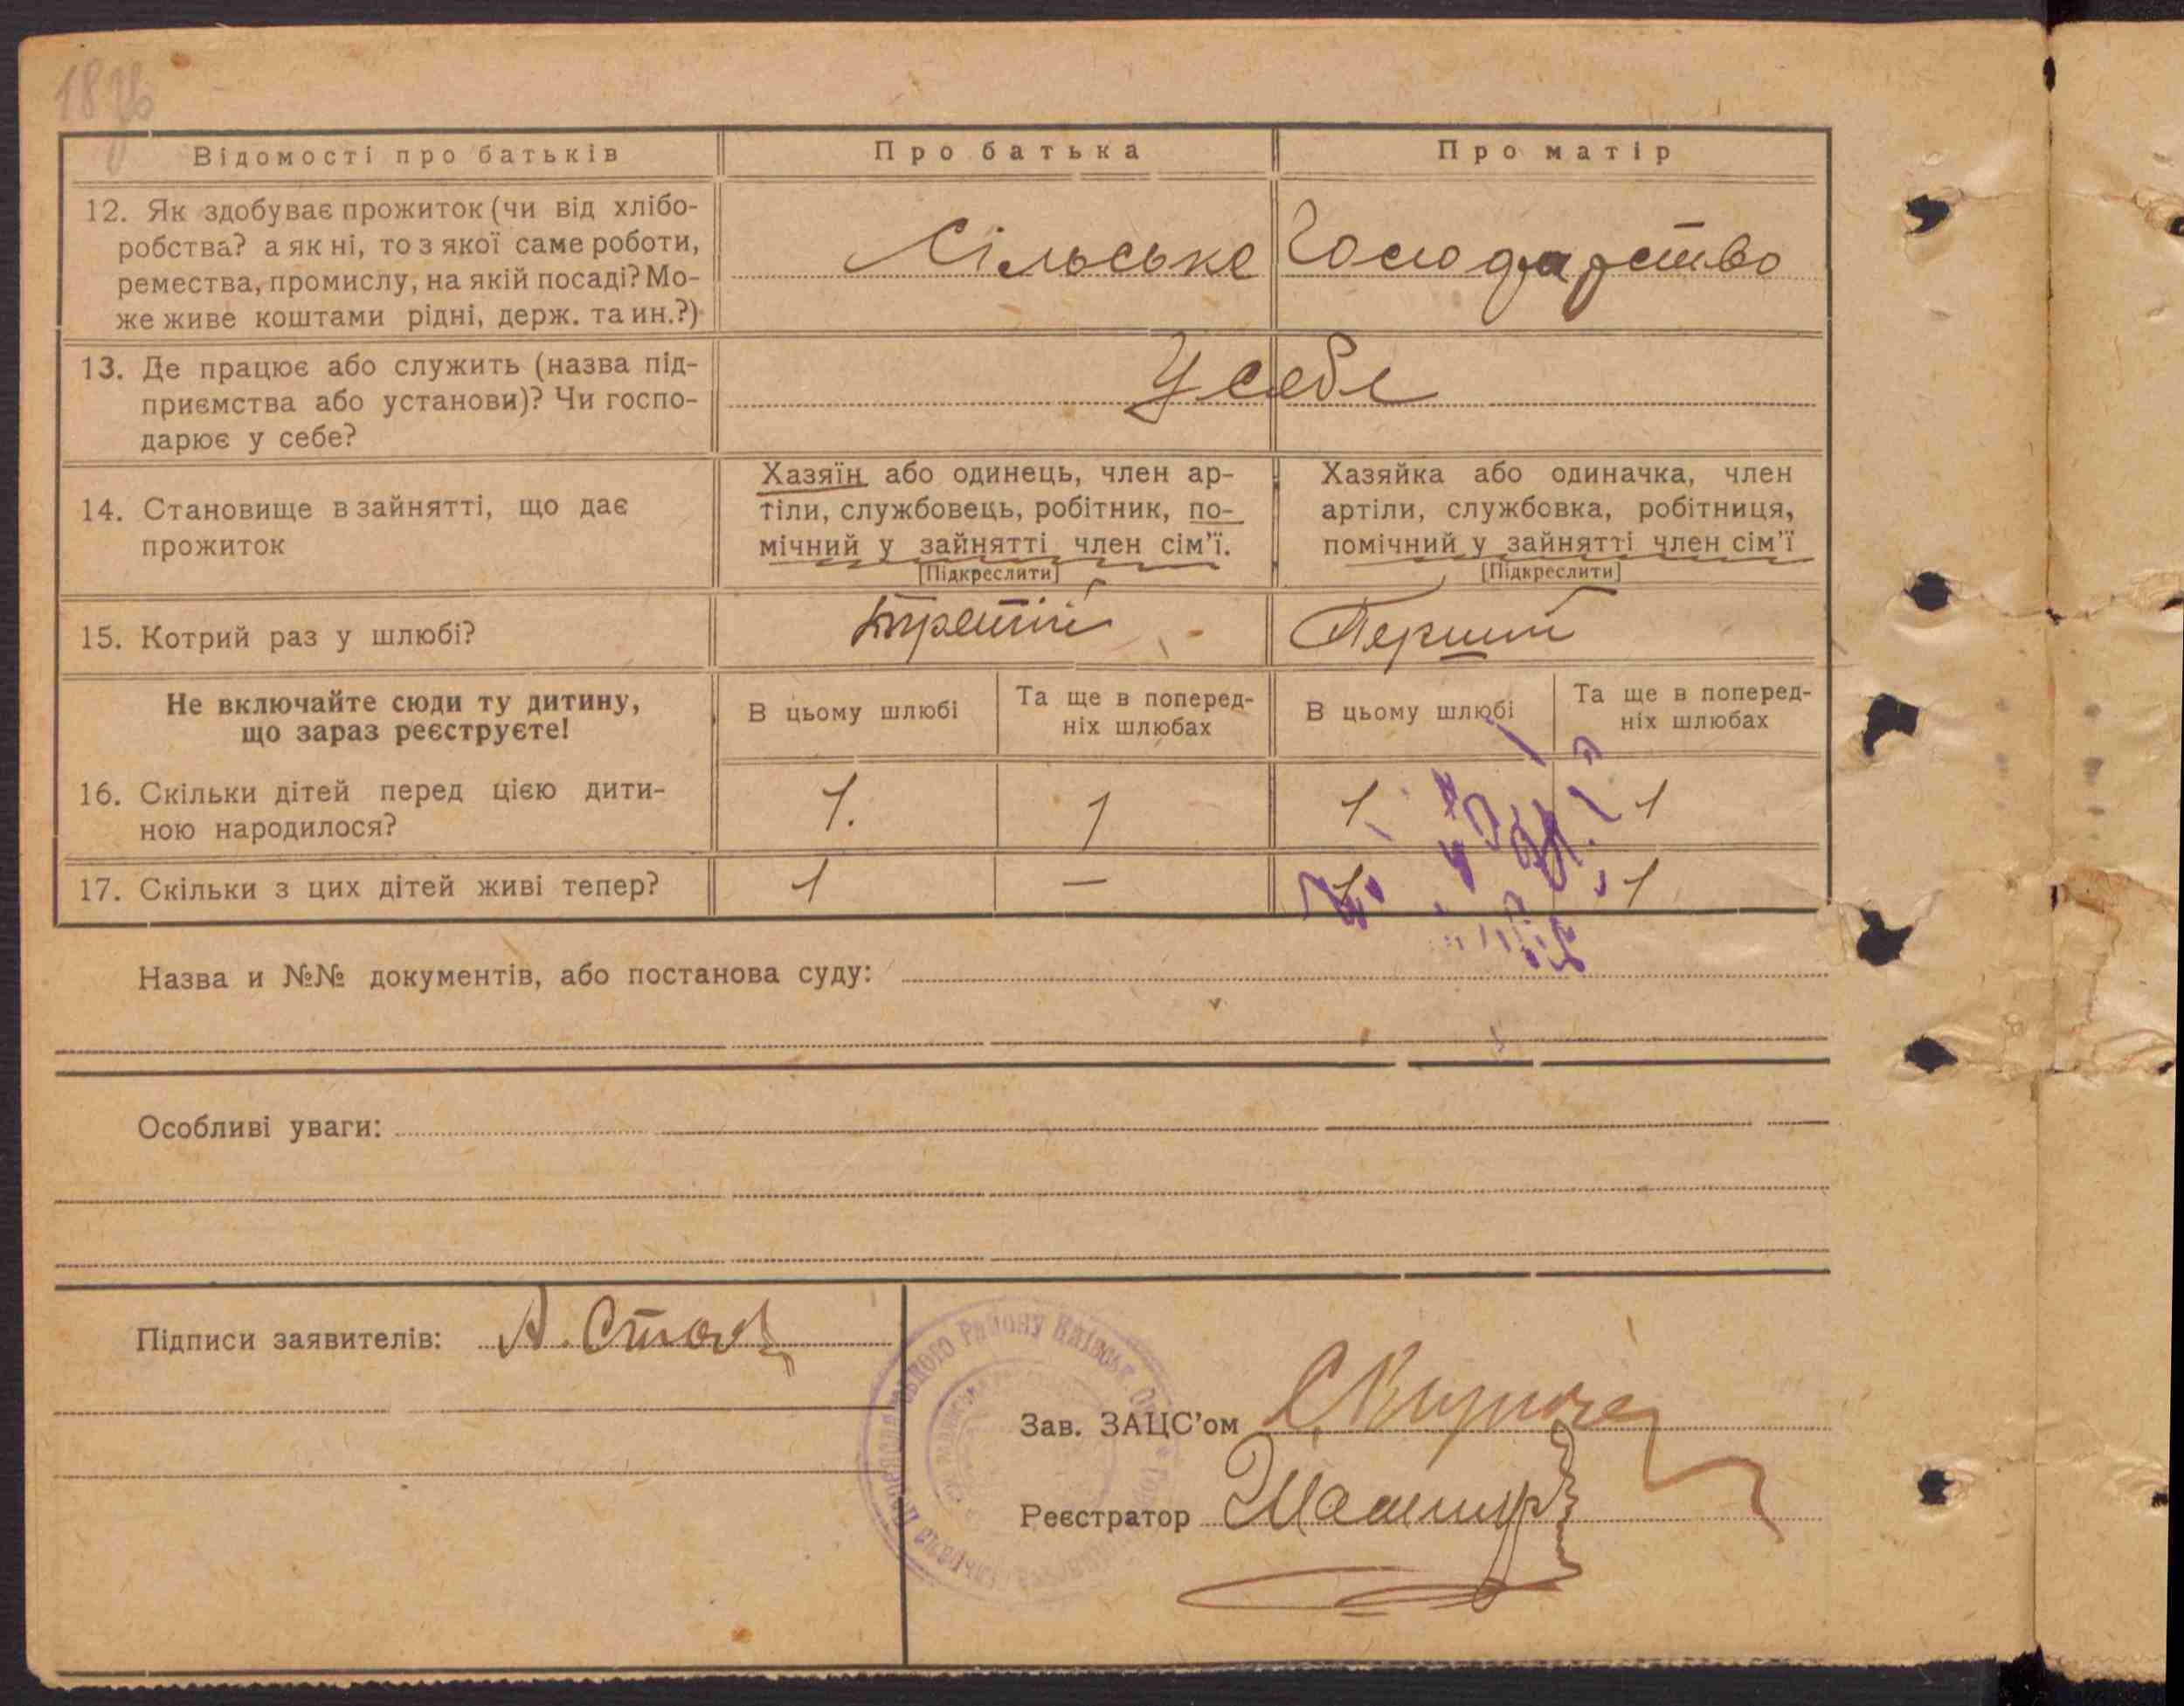 Відомості про батьків
Про батька
Про матір
12. Як здобуває прожиток (чи від хлібо-
робства? а як ні, то з якої саме роботи,
ремества, промислу, на якій посаді? Мо-
же живе коштами рідні, держ. та ин.?)
Сільське Господарство
13. Де працює або служить (назва під-
приємства або установи)? Чи госпо-
дарює у себе?
У себе
14. Становище в зайнятті, що дає
прожиток
Хазяїн або одинець, член ар-
тіли, службовець, робітник, по-
мічний у зайнятті член сім'ї.
[Підкреслити]
Хазяйка або одиначка, член
артіли, службовка, робітниця,
помічний у зайнятті член сім'ї
[Підкреслити]
15. Котрий раз у шлюбі?
Третій
Перший
Не включайте сюди ту дитину,
що зараз реєструєте!
В цьому шлюбі
Та ще в поперед-
ніх шлюбах
В цьому шлюбі
Та ще в поперед-
ніх шлюбах
16. Скільки дітей перед цією дити-
ною народилося?
1.
1
1
1
17. Скільки з цих дітей живі тепер?
1
—
1
1
Назва и №№ документів, або постанова суду:
Особливі уваги:
Підписи заявителів:
Зав. ЗАЦС'ом
Реєстратор